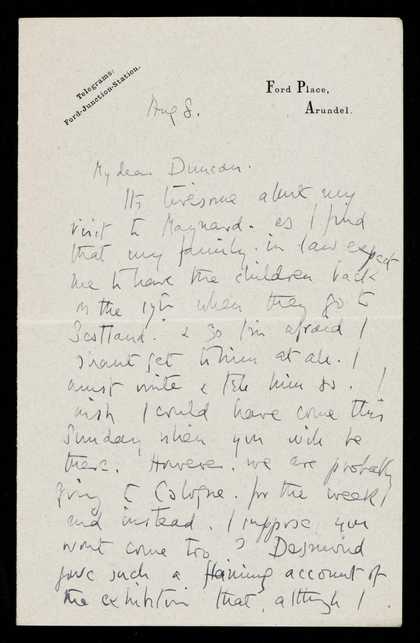 Telegrams:
Ford-Junction-Station.
Ford Place,
Arundel.
Aug 8.
My dear Duncan.
Its tiresome about my
visit to Maynard. as I find
that my family-in-law expect
me to have the children back
on the 19th when they go to
Scotland. & so I'm afraid I
shant get to him at all. I
must write & tell him so. I
wish I could have come this
Sunday when you will be
there. However. we are probably
going to Cologne. for the week
end instead. I suppose you
wont come too? Desmond
gave such a flaming account of
the exhibition that, although I